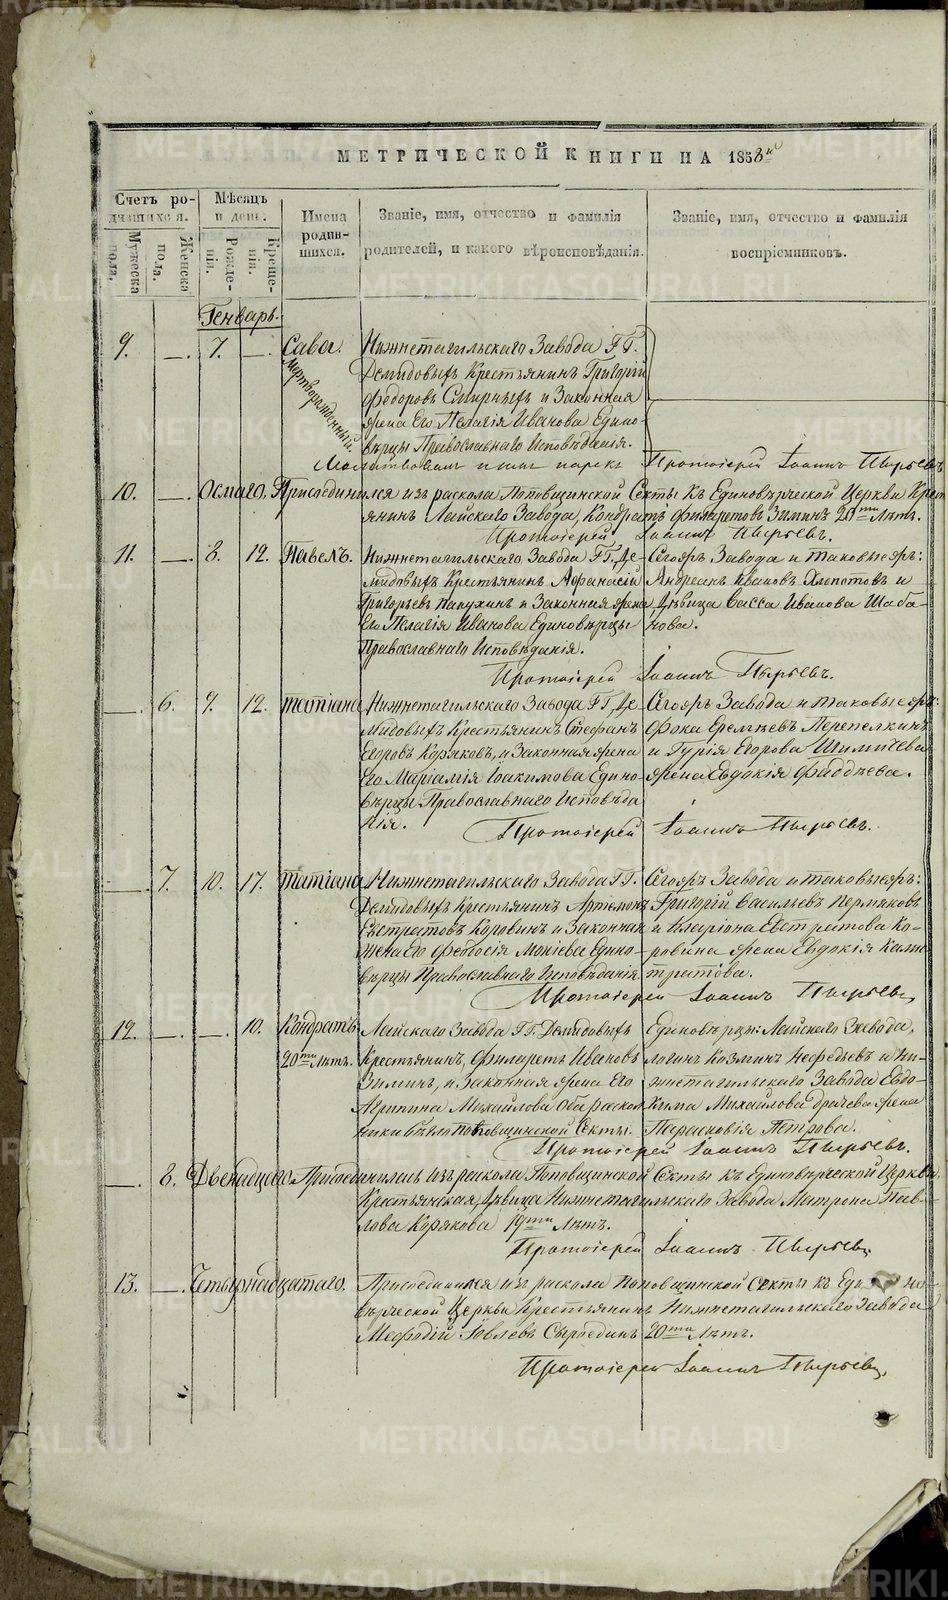 МЕТРИЧЕСКОЙ КНИГИ НА 1858й
Счетъ родившихся.
Мѣсяцъ и день.
Имена родившихся.
Званіе, имя, отчество и фамилія родителей, и какого вѣроисповѣданія.
Званіе, имя, отчество и фамилія воспріемниковъ.
Мужеска пола.
Женска пола.
Рожденія.
Крещенія.
Генварь.
9. — 7. — Сава. Нижнетагильскаго Завода Г.Г.
мертворожденный.
Демидовыхъ Крестьянинъ Григорій
Федоровъ Смирныхъ и Законная
жена Его Пелагія Иванова Едино-
вѣрцы Православнаго Исповѣданія.
Протоіерей Іоаннъ Пырьевъ
10. — Осмаго. Присоединился изъ раскола Поповщинской Секты къ Единовѣрческой Церкви Крест
янинъ Лайскаго Завода, Кондратъ Филаретовъ Зиминъ 20ти Лѣтъ.
Протоіерей Іоаннъ Пырьевъ.
11. — 8. 12. Павелъ. Нижнетагильскаго Завода Г.Г. Де-
мидовыхъ Крестьянинъ Афанасій
Григорьевъ Папухинъ и Законная жена
Его Пелагія Иванова Единовѣрцы
Православнаго Исповѣданія.
Сегожъ Завода и таковыежъ:
Андреанъ Ивановъ Хлопотовъ и
Дѣвица Васса Иванова Шаба-
нова.
Протоіерей Іоаннъ Пырьевъ.
— 6. 9. 12. Татіана Нижнетагильскаго Завода Г.Г. Де
мидовыхъ Крестьянинъ Стефанъ
Егоровъ Коряковъ, и Законная жена
Его Маріамія Іоакимова Едино-
вѣрцы Православнаго Исповѣда
нія.
Сегожъ Завода и таковыежъ:
Фока Еремѣевъ Перепелкинъ
и Гурія Егорова Шимичева
жена Евдокія Фаддѣева.
Протоіерей Іоаннъ Пырьевъ.
— 7. 10. 17. Татіана Нижнетагильскаго Завода Г.Г.
Демидовыхъ Крестьянинъ Артемонъ
Евстратовъ Коровинъ и Законная
жена Его Феодосія Мокіева Едино-
вѣрцы Православнаго Исповѣданія
Сегожъ Завода и таковыежъ:
Григорій Васильевъ Пермяковъ
и Иларіона Евстратова Ко-
ровина жена Евдокія Калис
тратова.
Протоіерей Іоаннъ Пырьевъ,
12. — — 10. Кондратъ 20ти Лѣтъ. Лайскаго Завода Г.Г. Демидовыхъ
Крестьянинъ, Филаретъ Ивановъ
Зиминъ, и Законная жена Его
Агрипина Михайлова Оба раскол
ники бѣглопоповщинской Секты.
Единовѣрцы: Лайскаго Завода,
Логинъ Козминъ Нефедьевъ и Ни-
жнетагильскаго Завода Евдо-
кима Михайлова Драчева жена
Парасковія Петрова.
Протоіерей Іоаннъ Пырьевъ.
— 8. Двенадцаго Присоединилась изъ раскола Поповщинской Секты къ Единовѣрческой Церкви,
Крестьянская Дѣвица Нижнетагильскаго Завода Митрона Пав-
лова Корякова 19ти Лѣтъ.
Протоіерей Іоаннъ Пырьевъ
13. — Четырнадцатаго. Присоединился изъ раскола Поповщинской Секты къ Едино-
вѣрческой Церкви Крестьянинъ Нижнетагильскаго Завода
Мефодій Іовлевъ Сыроединъ 20ти Лѣтъ.
Протоіерей Іоаннъ Пырьевъ,
METRIKI.GASO-URAL.RU